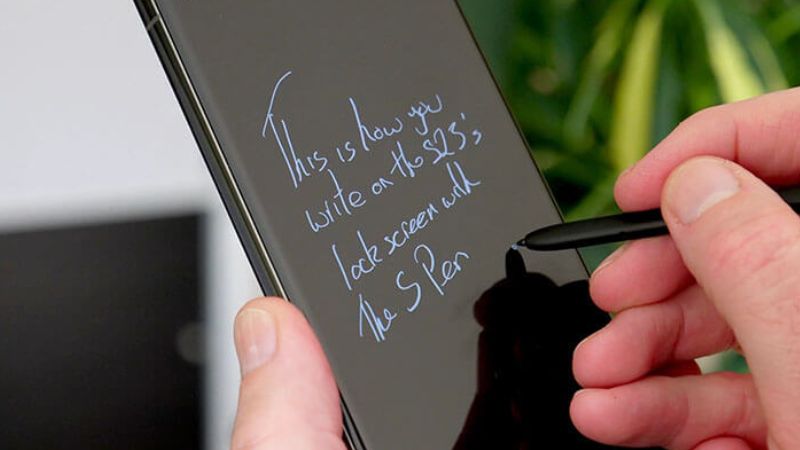 This is how you
write on the S25's
lock screen with
The S Pen